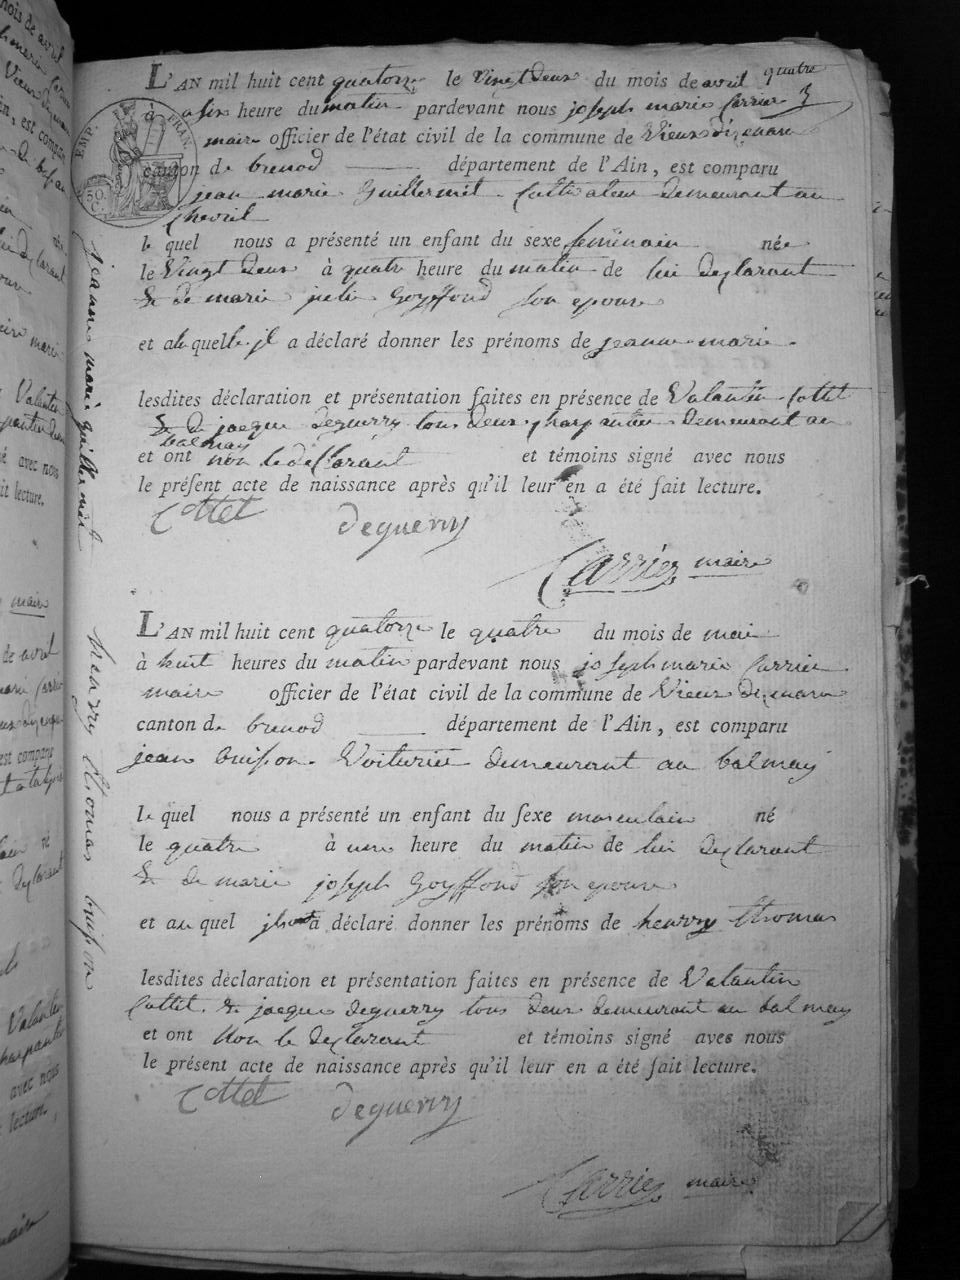 L'AN mil huit cent quatorze le vingt deux du mois de avril quatre
à six heure du matin pardevant nous joseph marie Carrier
maire officier de l'état civil de la commune de Vieux dizenave
canton de brenod département de l'Ain, est comparu
jean marie Guillermet Cultivateur demeurant au
Chevril
le quel nous a présenté un enfant du sexe feminain née
le Vingt deux à quatre heure du matin de lui declarant
& de marie julie Goyffond son epouse
et a laquelle il a déclaré donner les prénoms de jeanne marie
lesdites déclaration et présentation faites en présence de Valantin Cottet
& de jacque deguerry tous deux charpantier demeurant au
balmay
et ont non le declarant et témoins signé avec nous
le présent acte de naissance après qu'il leur en a été fait lecture.
Cottet deguerry
Carrier maire
jeanne marie guillermet
L'AN mil huit cent quatorze le quatre du mois de mai
à huit heures du matin pardevant nous joseph marie Carrier
maire officier de l'état civil de la commune de Vieux dizenave
canton de brenod département de l'Ain, est comparu
jean buisson Voiturier demeurant au balmay
le quel nous a présenté un enfant du sexe masculain né
le quatre à une heure du matin de lui declarant
& de marie joseph Goyffond son epouse
et au quel il a déclaré donner les prénoms de henrry thomas
lesdites déclaration et présentation faites en présence de Valantin
Cottet & jacque deguerry tous deux demeurant au balmay
et ont Non le declarant et témoins signé avec nous
le présent acte de naissance après qu'il leur en a été fait lecture.
Cottet deguerry
Carrier maire
henrry thomas buisson
EMP. FRAN.